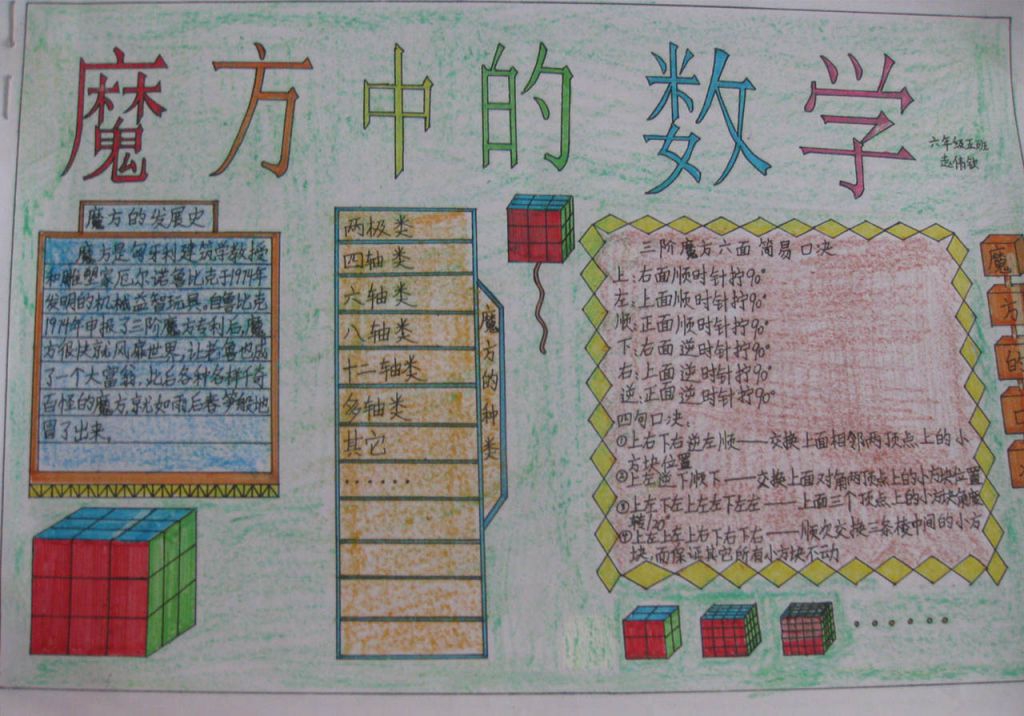 魔方中的数学
六年级五班
赵伟钦
魔方的发展史
魔方是匈牙利建筑学教授
和雕塑家厄尔诺鲁比克于1974年
发明的机械益智玩具。自鲁比克
1974年申报了三阶魔方专利后,魔
方很快就风靡世界,让老鲁也成
了一个大富翁。此后各种各样千奇
百怪的魔方,就如雨后春笋般地
冒了出来。
两极类
四轴类
六轴类
八轴类
十二轴类
多轴类
其它
……
魔方的种类
三阶魔方六面简易口决
上:右面顺时针拧90°
左:上面顺时针拧90°
顺:正面顺时针拧90°
下:右面逆时针拧90°
右:上面逆时针拧90°
逆:正面逆时针拧90°
四句口决:
①上右下右逆左顺——交换上面相邻两顶点上的小
方块位置
②上左逆下顺下——交换上面对角两顶点上的小方块位置
③上左下左上左左下左左——上面三个顶点上的小方块角度
转120°
④上左上左上右下右下右——顺次交换三条棱中间的小方
块,而保证其它所有小方块不动
魔
方
的
口
……